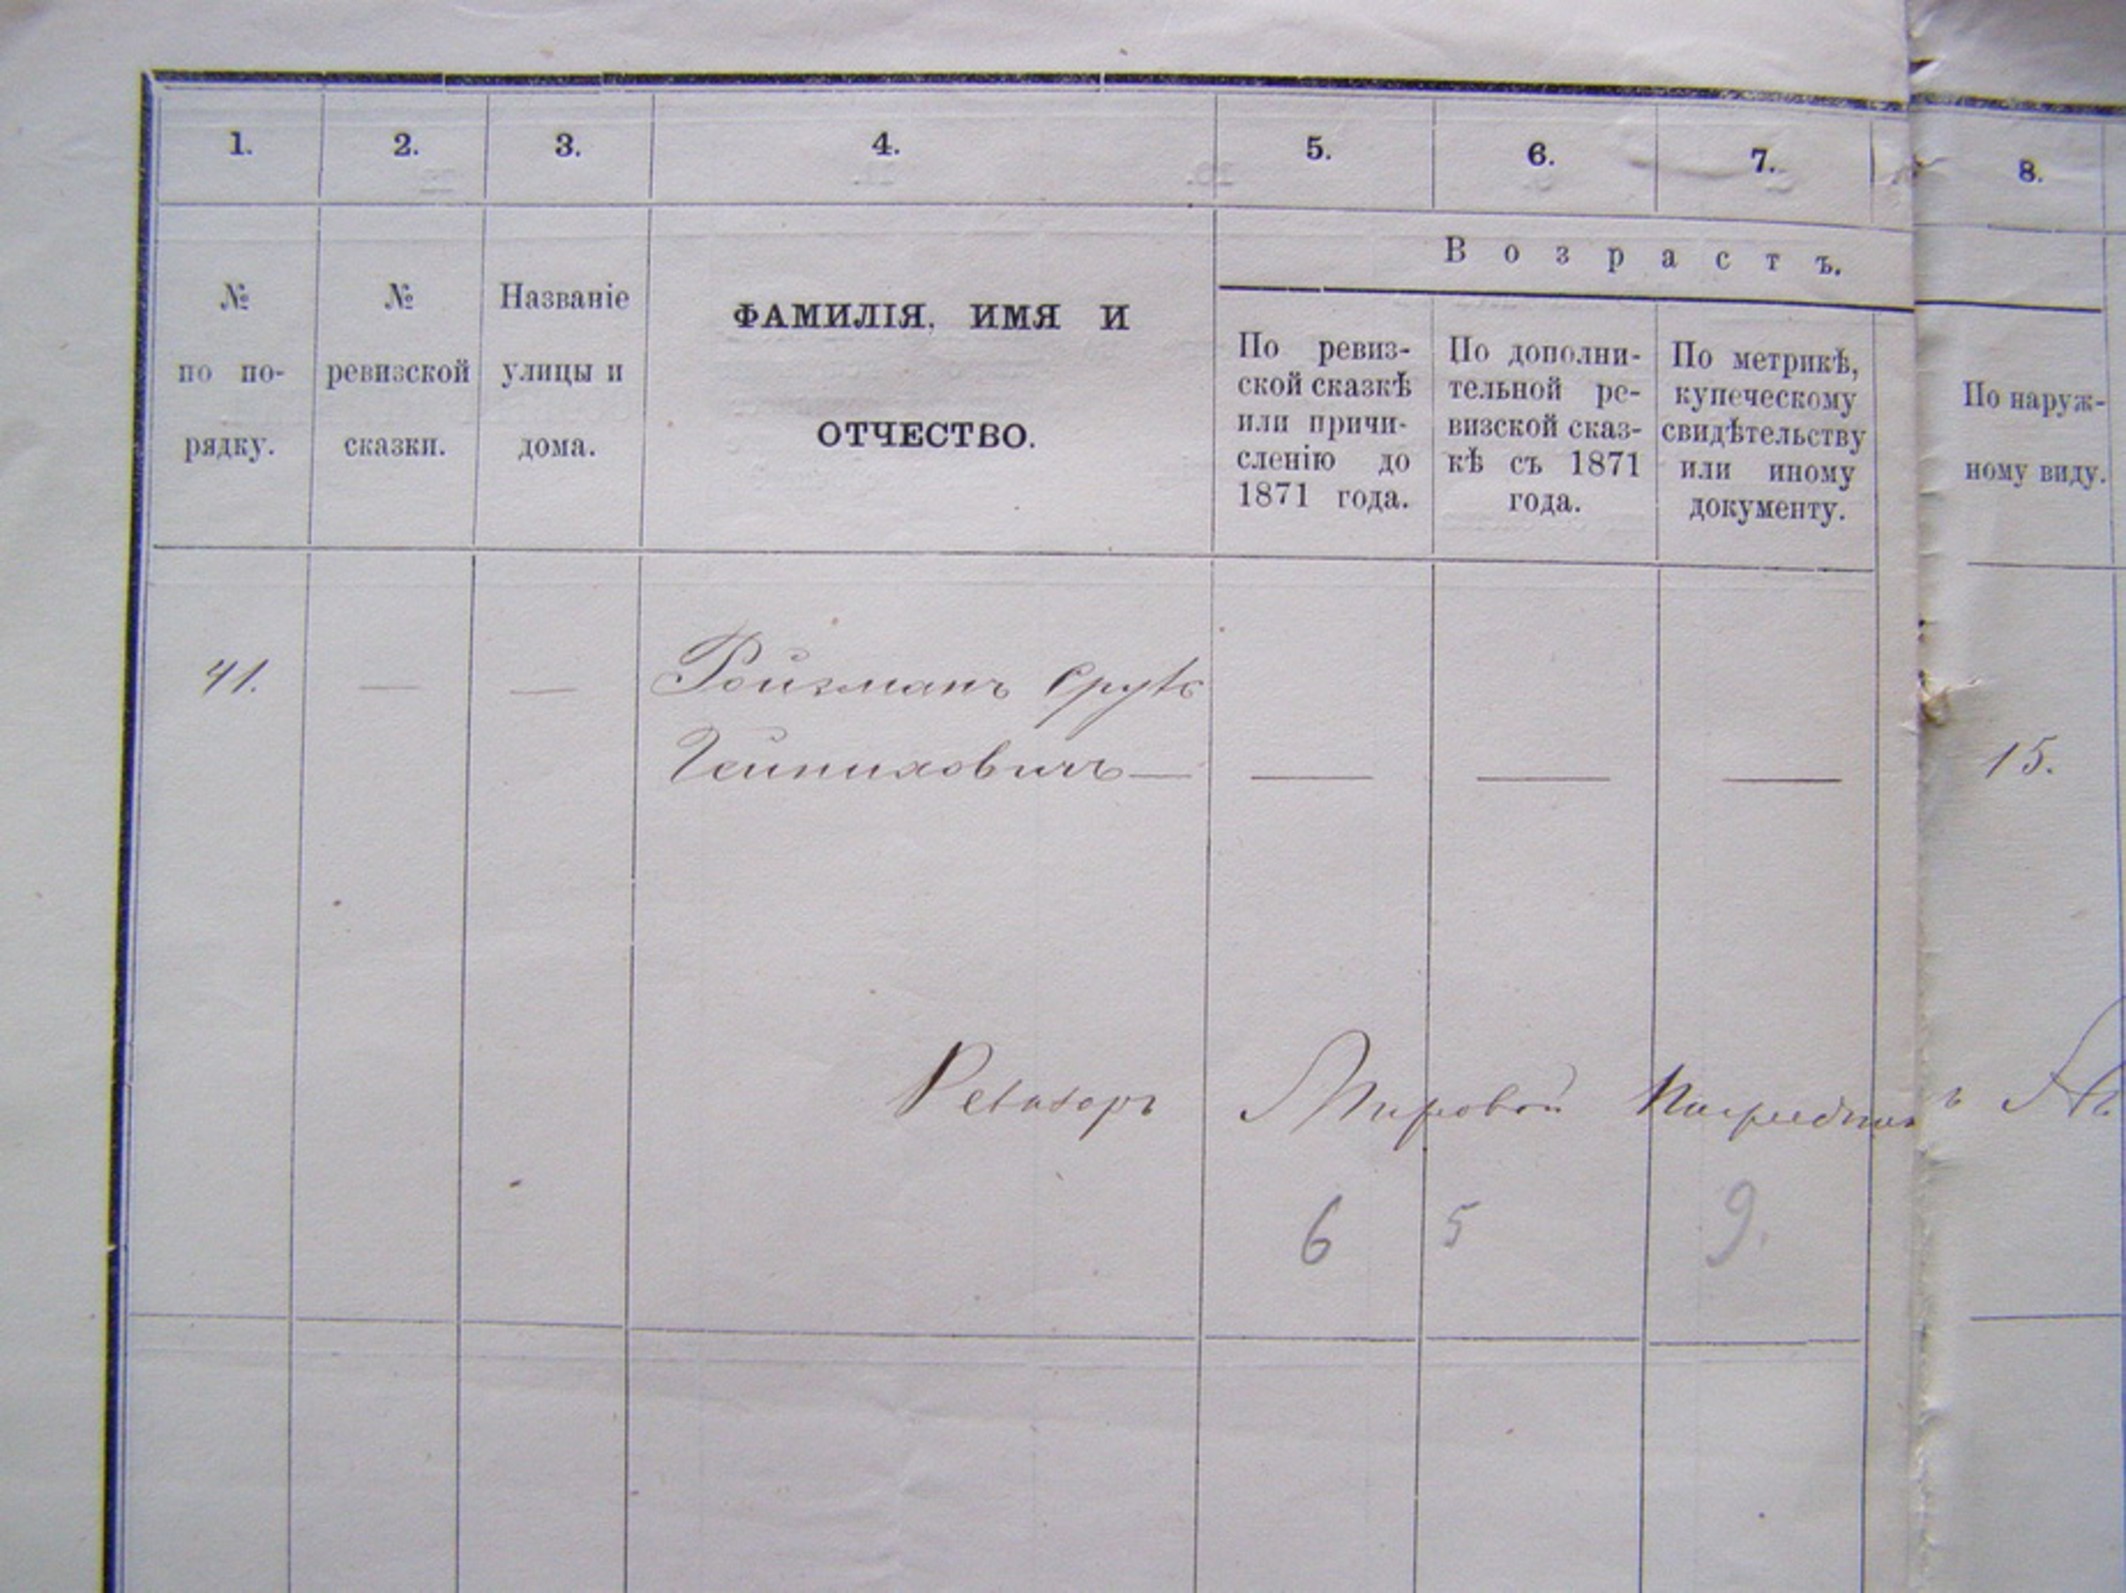 1. 2. 3. 4. 5. 6. 7. 8.
Возрастъ.
№
по по-
рядку.
№
ревизской
сказки.
Названіе
улицы и
дома.
ФАМИЛІЯ, ИМЯ И
ОТЧЕСТВО.
По ревиз-
ской сказкѣ
или причи-
сленію до
1871 года.
По дополни-
тельной ре-
визской сказ-
кѣ съ 1871
года.
По метрикѣ,
купеческому
свидѣтельству
или иному
документу.
По наруж-
ному виду.
41. — — Ройзманъ Сруль
— — — — 15.
Ревизоръ Мировой Посредникъ
6 5 9.